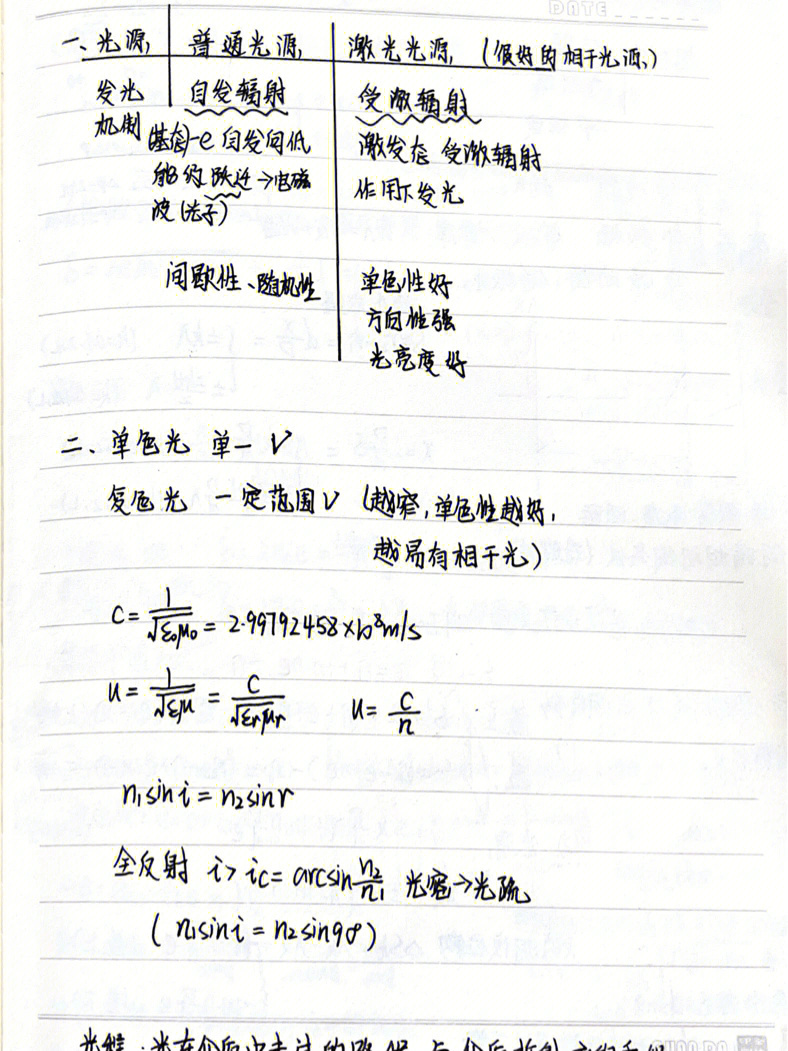 DATE
一、光源 普通光源 激光光源 (很好的相干光源)
发光机制 自发辐射 受激辐射
(基态)-e自发向低 激发态 受激辐射
能级跃迁→电磁 作用下发光
波(光子)
间歇性、随机性 单色性好
方向性强
光亮度好
二、单色光 单一ν
复色光 一定范围ν (越窄,单色性越好,
越易有相干光)
C=1/√ε₀μ₀=2.99792458×10⁸m/s
u=1/√εμ=C/√εrμr u=C/n
n₁sini=n₂sinr
全反射 i>ic=arcsin n₂/n₁ 光密→光疏
(n₁sini=n₂sin90°)
光程:光在介质中走过的路程与介质折射率的乘积